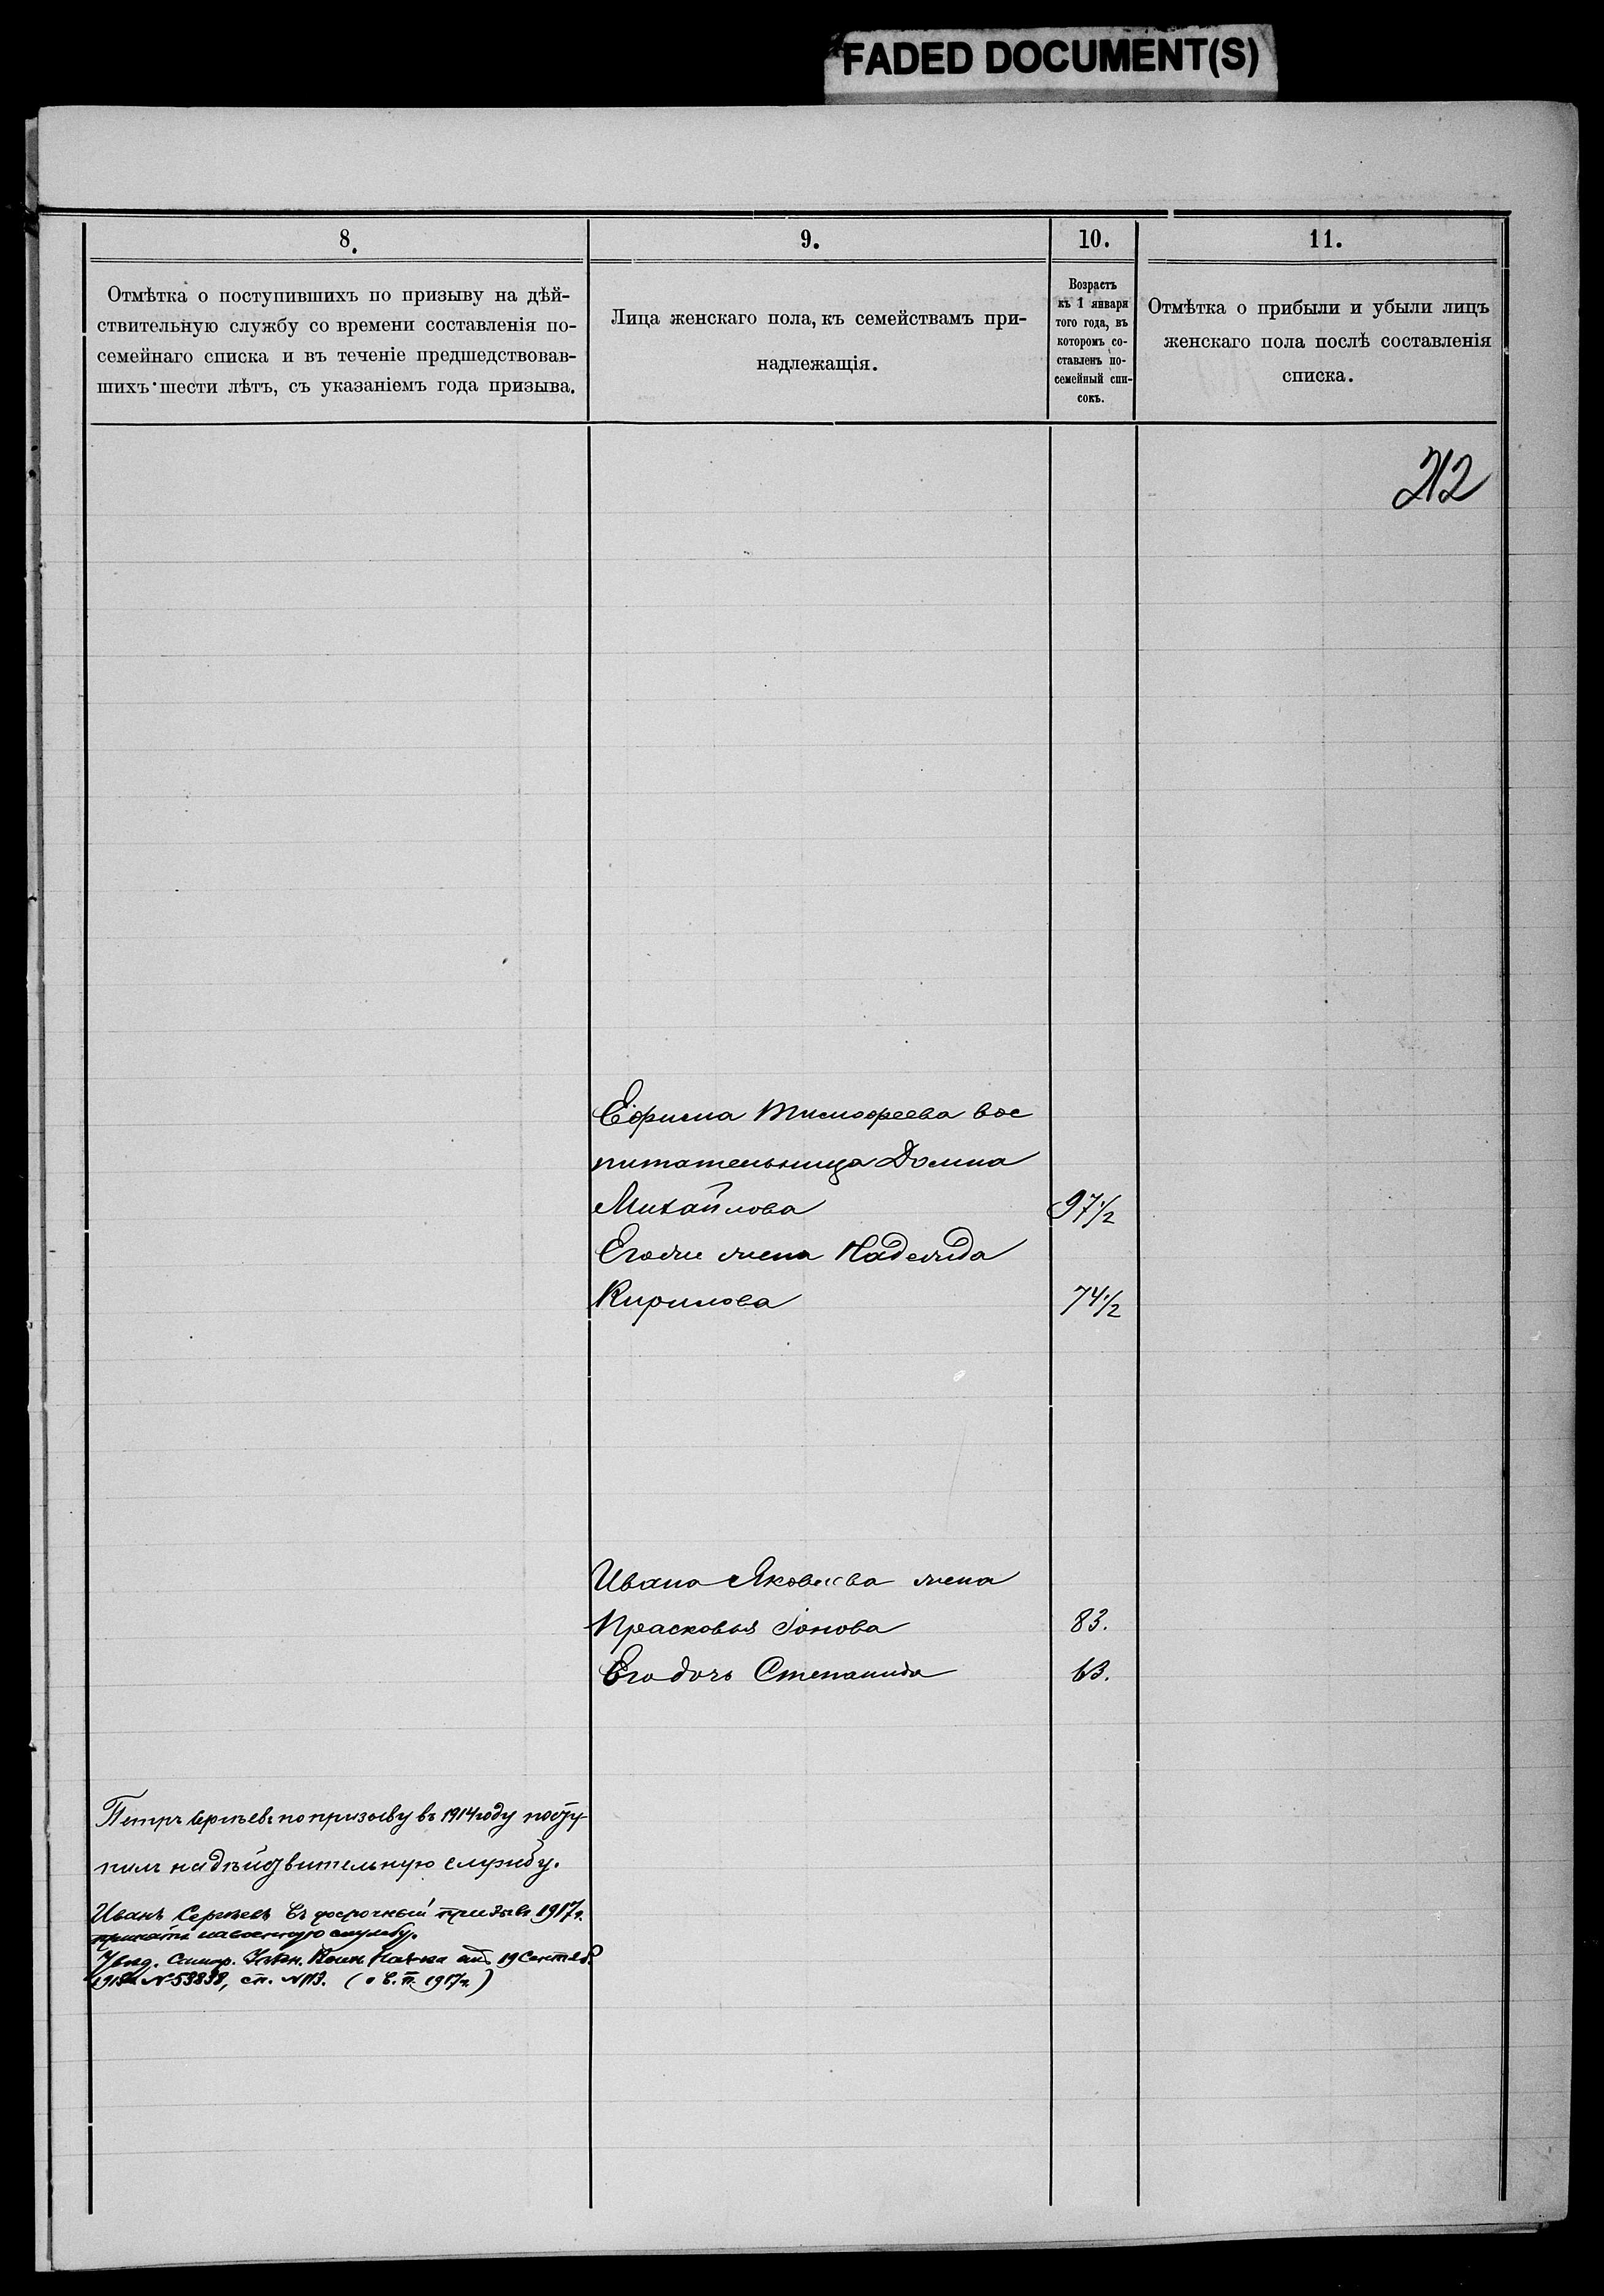 FADED DOCUMENT(S)
8.
Отмѣтка о поступившихъ по призыву на дѣй-
ствительную службу со времени составленія по-
семейнаго списка и въ теченіе предшедствовав-
шихъ шести лѣтъ, съ указаніемъ года призыва.
9.
Лица женскаго пола, къ семействамъ при-
надлежащія.
10.
Возрастъ
къ 1 января
того года, въ
которомъ со-
ставленъ по-
семейный спи-
сокъ.
11.
Отмѣтка о прибыли и убыли лицъ
женскаго пола послѣ составленія
списка.
212
Ефима Тимофеева вос
питательница Домна
Михайлова 97 1/2
Его же жена Надежда
Кирилова 74 1/2
Ивана Яковлева жена
Прасковья Іонова 83.
Его дочь Степанида 63.
Петръ Сергѣевъ по призыву въ 1914 году посту-
пилъ на дѣйствительную службу.
Иванъ Сергѣевъ въ досрочный призывъ 1917 г.
принятъ на военную службу.
Увѣд. Воин. Нач-ка отъ 19 Сентяб.
№ 53838, ст. № 113. (о в. п. 1917 г.)